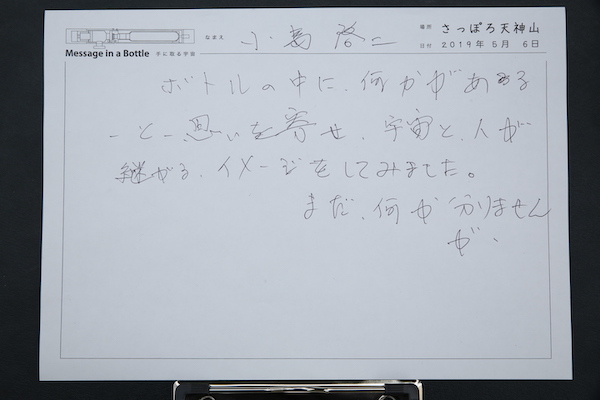 Message in a Bottle 手に取る宇宙
なまえ 小島 啓二
場所 さっぽろ天神山
日付 2019年5月6日
ボトルの中に、何かがある
ーと一思いを寄せ、宇宙と、人が
継がる、イメージをしてみました。
まだ、何か分りません
が、